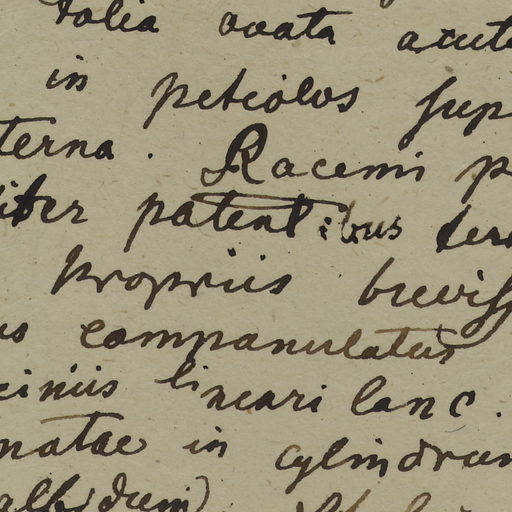 folia ovata acuta
in petiolos sup
terna. Racemi p
iter patentibus ter
propriis breviss
us campanulatus
ciniis lineari lanc.
natae in cylindrum
albidum)